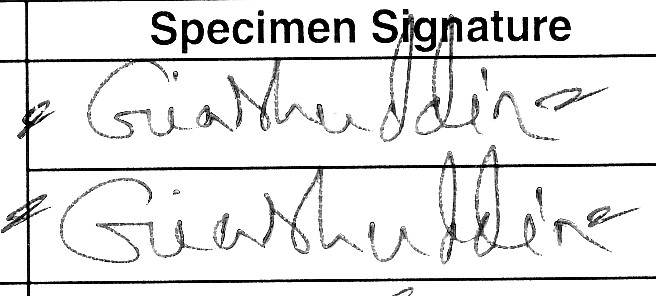 Specimen Signature
Giashuddin
Giashuddin